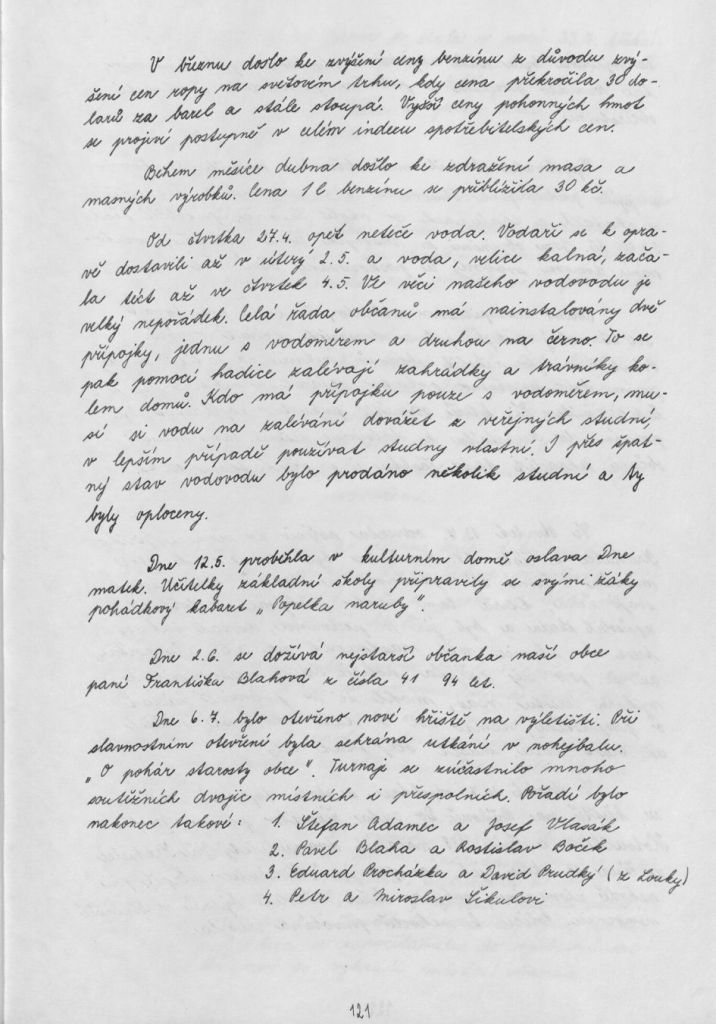 V březnu došlo ke zvýšení ceny benzínu z důvodu zvý-
šení cen ropy na světovém trhu, kdy cena překročila 30 do-
larů za barel a stále stoupá. Vyšší ceny pohonných hmot
se projeví postupně v celém indexu spotřebitelských cen.
Během měsíce dubna došlo ke zdražení masa a
masných výrobků. Cena 1 l benzínu se přiblížila 30 kč.
Od čtvrtka 27.4. opět neteče voda. Vodaři se k opra-
vě dostavili až v úterý 2.5. a voda, velice kalná, zača-
la téct až ve čtvrtek 4.5. Ve věci našeho vodovodu je
velký nepořádek. Celá řada občanů má nainstalovány dvě
přípojky, jednu s vodoměrem a druhou na černo. To se
pak pomocí hadice zalévají zahrádky a trávníky ko-
lem domů. Kdo má přípojku pouze s vodoměrem, mu-
sí si vodu na zalévání dovážet z veřejných studní,
v lepším případě používat studny vlastní. I přes špat-
ný stav vodovodu bylo prodáno několik studní a ty
byly oploceny.
Dne 12.5. proběhla v kulturním domě oslava Dne
matek. Učitelky základní školy připravily se svými žáky
pohádkový kabaret „Popelka naruby".
Dne 2.6. se dožívá nejstarší občanka naší obce
paní Františka Blahová z čísla 41 94 let.
Dne 6.7. bylo otevřeno nové hřiště na výletišti. Při
slavnostním otevření byla sehrána utkání v nohejbalu.
„O pohár starosty obce". Turnaje se zúčastnilo mnoho
soutěžních dvojic místních i přespolních. Pořadí bylo
nakonec takové: 1. Štefan Adamec a Josef Vlasák
2. Pavel Blaha a Rostislav Boček
3. Eduard Procházka a David Prudký (z Louky)
4. Petr a Miroslav Šikulovi
121